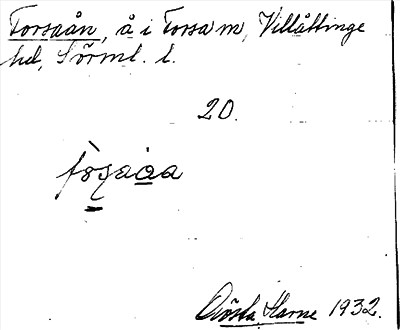 Forsaån, å i Forsa m, Villåttinge
hd, Sörml. l.
20.
Gösta Harne 1932.